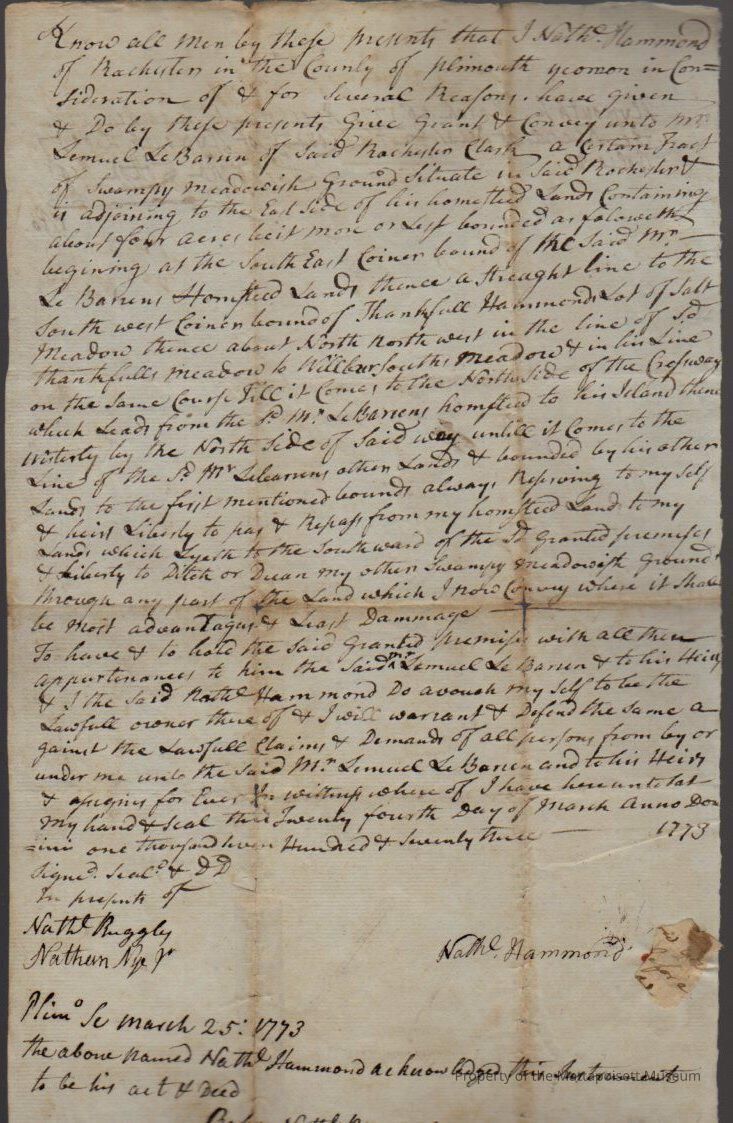 Know all men by these presents that I Nathl. Hammond
of Rochester in the County of plimouth yeomon in Con=
sideration of & for Several Reasons have given
& Do by these presents Give Grant & Convey unto mr.
Lemuel LeBaren of Said Rochester Clark a Certain Tract
of Swampy meadowish Ground Situate in Said Rochester &
is adjoining to the East Side of his homested Lands Containing
about four acres be it more or Less bounded as foloweth
begining at the South East Coiner bound of the Said Mr.
Le Barrens Homsteed Lands thence a streaght line to the
South west Coiner bound of Thankfull Hammonds Lot of Salt
Meadow thence about North North west in the line of Sd
thankfulls meadow to Willbur Souths meadow & in his Line
on the Same Course Till it Comes to the North Side of the Crossway
which Leads from the Sd. Mr. LeBarrens homsteed to his Island thence
westerly by the North Side of Said way untill it Comes to the
Line of the Sd. Mr Lebarrens other Lands & bounded by his other
Lands to the first mentioned bounds always Reserving to my Self
& heirs Liberty to pas & Repass from my homsteed Land to my
Lands which Lyeth to the Southward of the Sd Granted premises
& Liberty to Ditch or Drean my other Swampy meadowish Ground
through any part of the Land which I now Convey where it Shall
be most advantagus & Least Dammage
To have & to hold the Said Granted premises with all then
appurtenances to him the Said mr Lemuel Le Baren & to his Heirs
& I the Said Nathl. Hammond Do avouch my Self to be the
Lawfull owner there of & I will warrant & Defend the Same a
gainst the Lawfull Claims & Demands of all persons from by or
under me unto the Said Mr. Lemuel Le Baren and to his Heirs
& assigns for Ever In witness where of I have hereunto Sat
my hand & Seal this Twenty fourth Day of March Anno Dom
=ini one thousand seven Hundred & Seventy three — 1773
Signd. Seald. & DD
In presents of
Nathl. Ruggles
Nathan Nye Jr
Nathl. Hammond
Plimo Sc March 25: 1773
the above named Nathl. Hammond acknowledged this Instrument
to be his act & Deed
Property of the Mattapoisett Museum